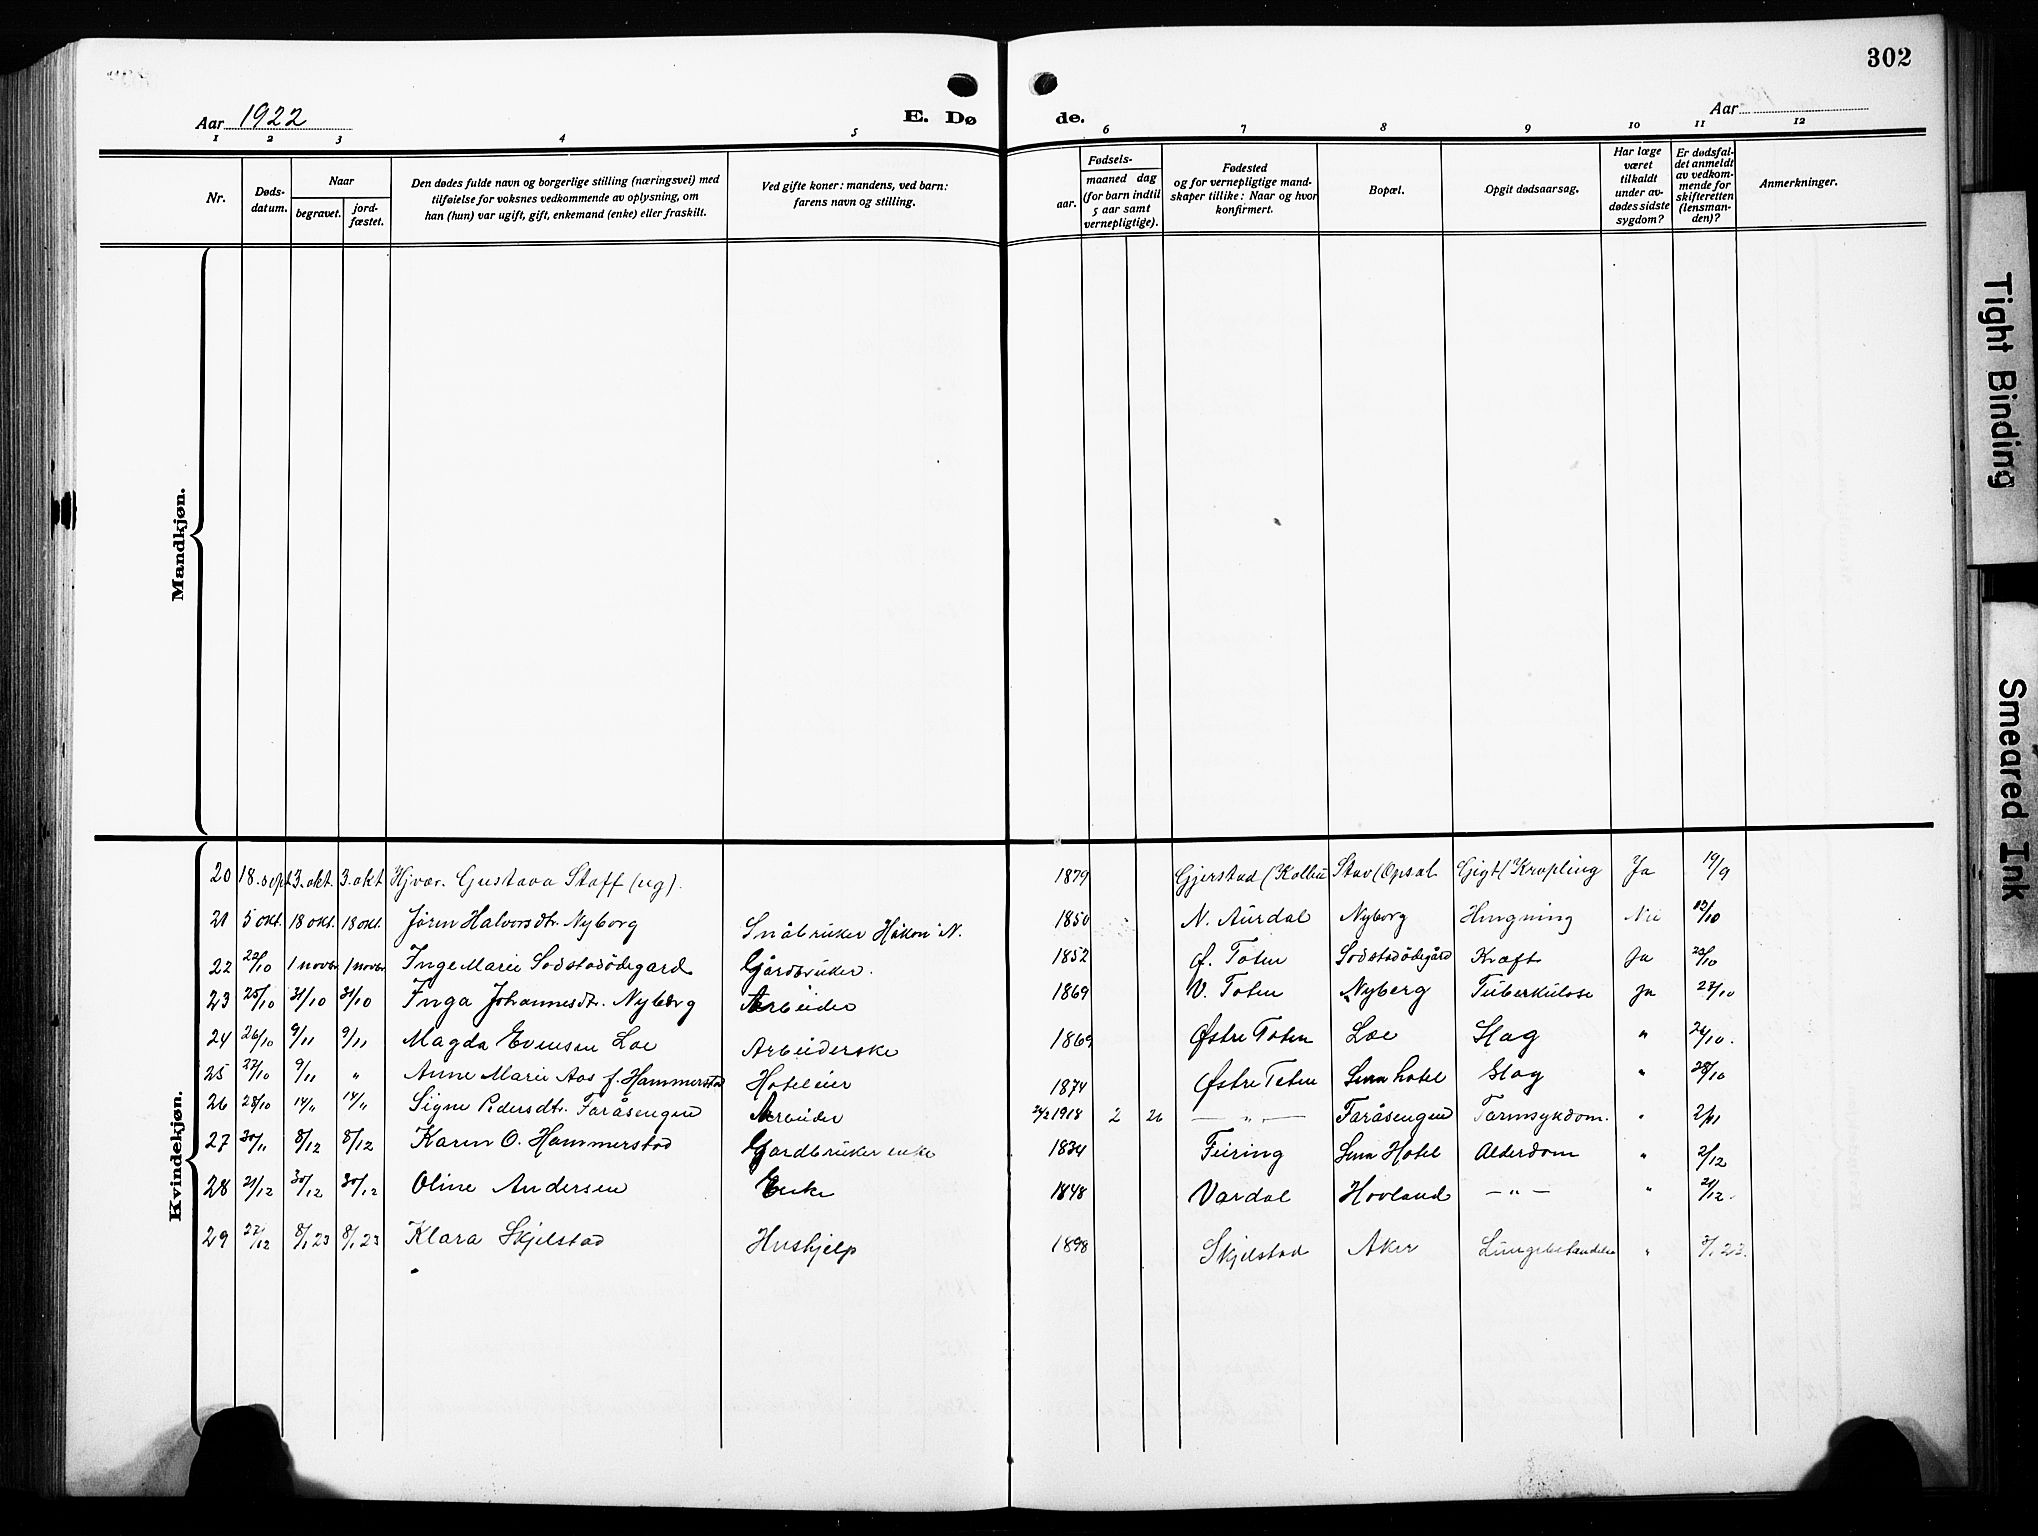 302
Aar 1922
E. Dø de.
Aar
1 2 3 4 5 6 7 8 9 10 11 12
Nr.
Døds-
datum.
Naar
begravet.
jord-
fæstet.
Den dødes fulde navn og borgerlige stilling (næringsvei) med
tilføielse for voksnes vedkommende av oplysning, om
han (hun) var ugift, gift, enkemand (enke) eller fraskilt.
Ved gifte koner: mandens, ved barn:
farens navn og stilling.
Fødsels-
aar.
maaned dag
(for barn indtil
5 aar samt
vernepligtige).
Fødested
og for vernepligtige mand-
skaper tillike: Naar og hvor
konfirmert.
Bopæl.
Opgit dødsaarsag.
Har læge
været
tilkaldt
under av-
dødes sidste
sygdom?
Er dødsfal-
det anmeldt
av vedkom-
mende for
skifteretten
(lensman-
den)?
Anmerkninger.
Mandkjøn.
Kvindekjøn.
20 18. sept 3. okt. 3. okt Gustava Staff (ug). 1879 Gjerstad Gigt Ja 19/9
21 5 okt. 18 okt. 18 okt. Jøren Halvorsdtr. Nyborg Småbruker Håkon N. 1850 N. Aurdal Nyborg Nei 13/10
22 22/10 1 novbr 1 novbr Inge Marie Sodstadødegard Gårdbruker. 1852 Ø. Toten Sodstadødegård Kræft Ja
23 25/10 31/10 31/10 Inga Johannesdtr. Nyberg Arbeider 1869 V. Toten Nyberg Tuberkulose Ja 27/10
24 26/10 9/11 9/11 Magda Evensen Loe Arbeiderske 1869 Østre Toten Loe Slag " 26/10.
25 27/10 9/11 " Anne Marie Aas f. Hammerstad Hoteleier 1874 Østre Toten Lena hotel Slag " 28/10
26 28/10 14/11 14/11 Signe Pedersdtr. Faråsengen Arbeider 1918 2 26 — " — Faråsengen Tarmsykdom. " 2/11
27 30/11 8/12 8/12 Karen O. Hammerstad Gardbruker enke 1834 Feiring Lena Hotel Alderdom " 2/12
28 21/12 30/12 30/12 Oline Andersen Enke 1848 Vardal Hovland — " — " 21/12.
29 22/12 8/1 23 8/1 23 Klara Skjelstad Hushjelp 1898 Skjelstad Aker " 3/1 23.
Tight Binding
Smeared Ink